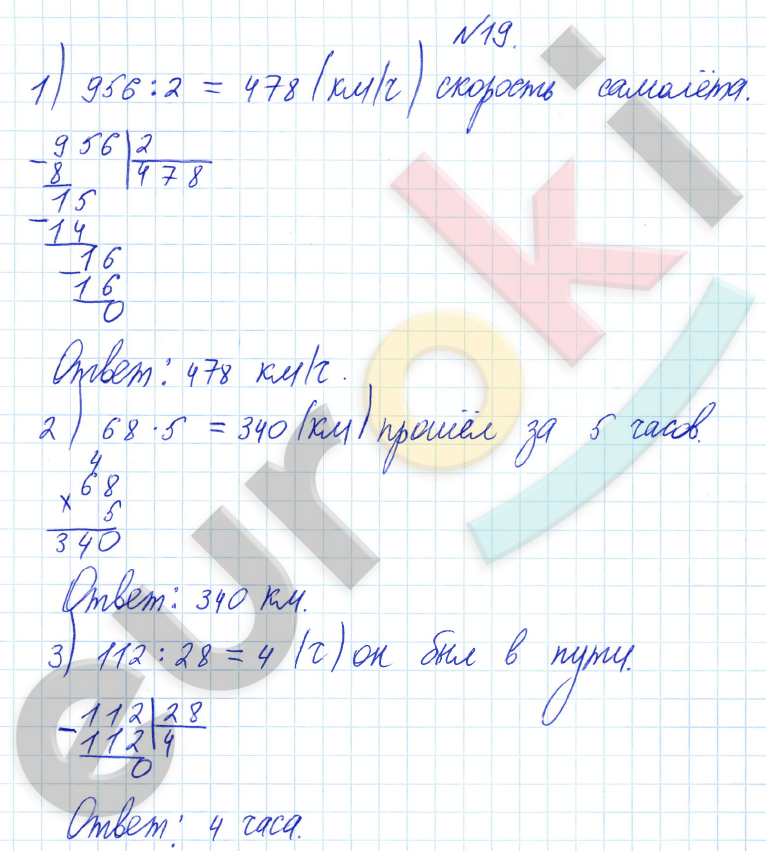 №19.
1) 956 : 2 = 478 (км/ч) скорость самолёта.
956 | 2
- 8 | 478
15
- 14
16
- 16
0
Ответ: 478 км/ч.
2) 68 · 5 = 340 (км) прошёл за 5 часов.
4
68
× 5
340
Ответ: 340 км.
3) 112 : 28 = 4 (ч) он был в пути.
- 112 | 28
112 | 4
0
Ответ: 4 часа.
euroki